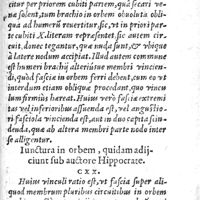 tur per priorem cubiti partem, quà secari ve
na solent, tum brachio in orbem obuoluta obli
qua ad humerū reuertitur, sic, vt in priori par
te cubiti X. literam repræsentet. sic autem cir
cuit, donec tegantur, quæ nuda sunt, & vbique
à latere nodum accipiat. Illud autem commune
est humeri brachij alteriúsue membri vincien
di, quòd fascia in orbem ferri debent, eum eo vt
interdum etiam obliqua procedant, quo vincu
lum firmius hæreat. Huius verò fascia extremi
tas vel insuenda membro est, vel si angustio
ri fasciola vincienda est, aut in duo capita scin
denda, quæ ab altera membri parte nodo inter
se alligentur.
Iunctura in orbem, quidam adij-
ciunt sub auctore Hippocrate.
CXX.
Huius vinculi ratio est, vt fascia super ali
quod membrum pluribus circuitibus in orbem